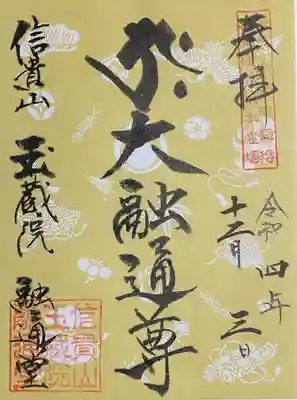 奉拝
令和四年
十二月三日
大融通尊
信貴山
玉蔵院
融通堂
信貴山
玉蔵院